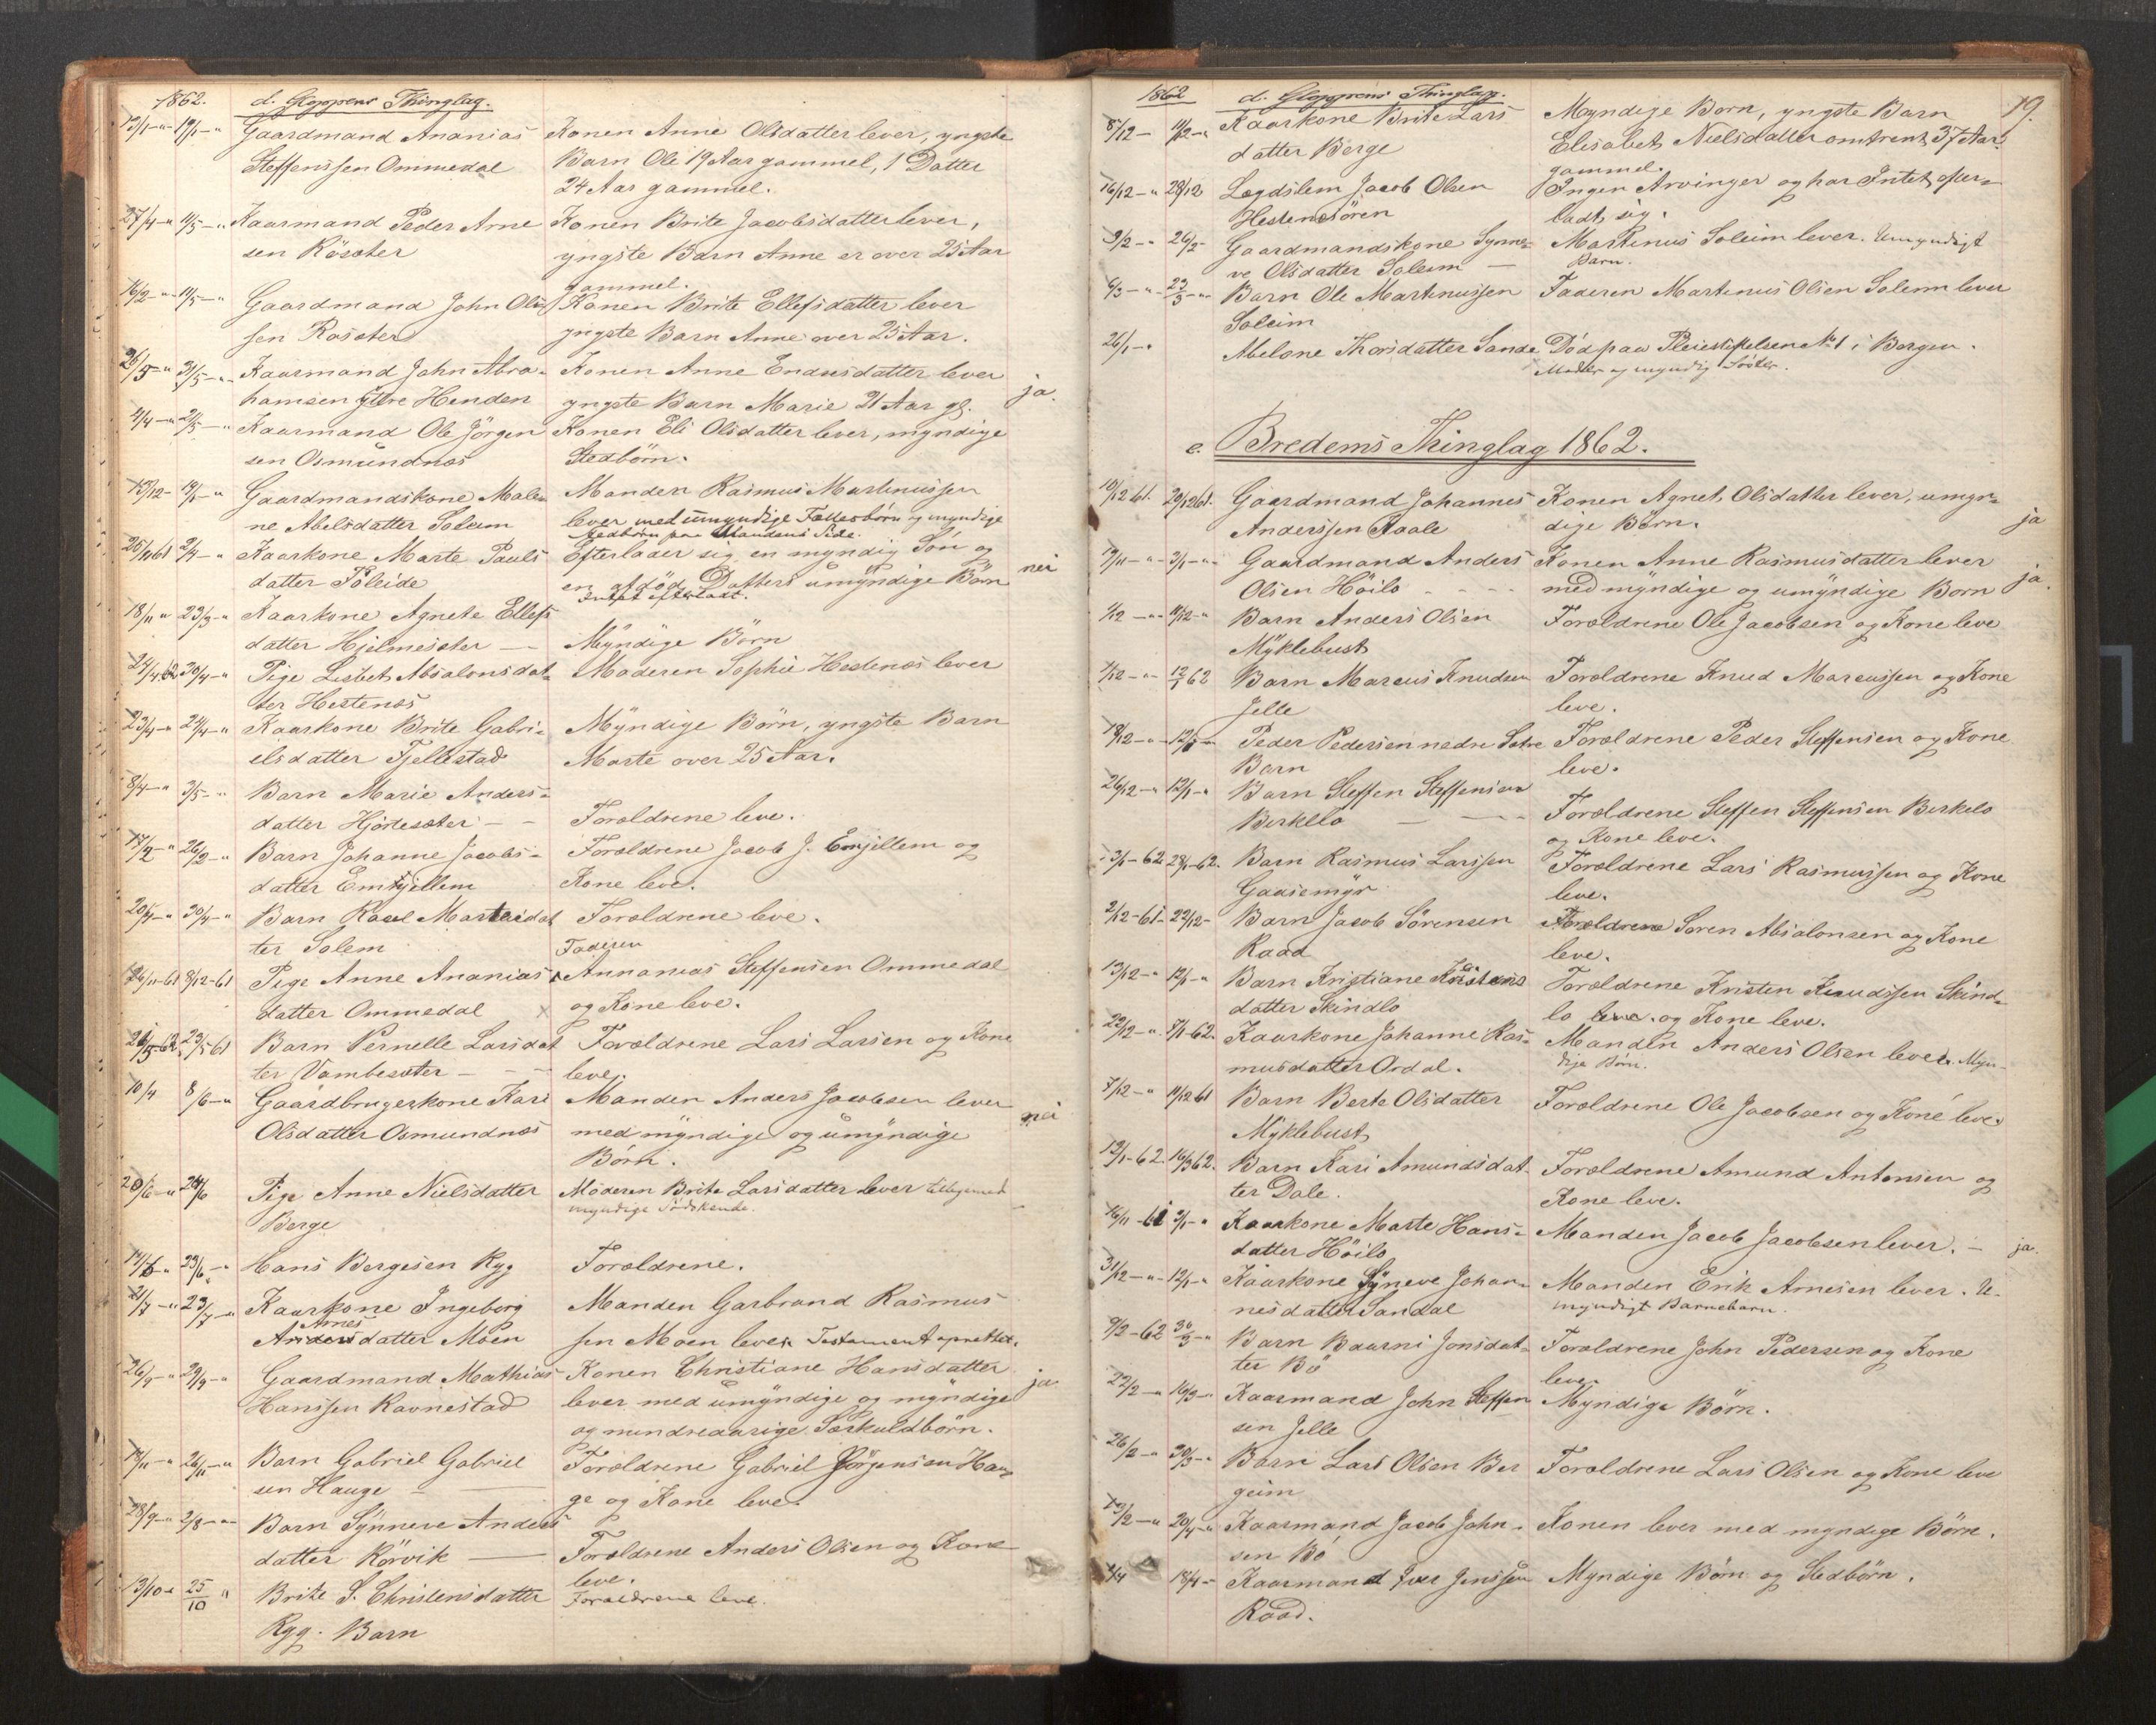 1862. d. Gloppens Thinglag.
13/1 -"- 19/1 -" Gaardmand Ananias Konen Anne Olsdatter lever, yngste
Steffenssen Ommedal Barn Ole 19 Aar gammel, 1 Datter
24 Aar gammel.
27/4 -" 11/5 -" Kaarmand Peder Arne Konen Brite Jacobsdatter lever,
sen Rösæter yngste Barn Anne er over 25 Aar
gammel.
16/2 -" 11/5 -" Gaardmand John Ols Konen Brite Ellefsdatter lever
sen Rösæter yngste Barn Anne over 25 Aar.
26/5 -" 31/5 -" Kaarmand John Abra- Konen Anne Endresdatter lever
hamsen ytre Henden yngste Barn Marie 21 Aar gl. ja.
4/4 -" 2/5 -" Kaarmand Ole Jörgen Konen Eli Olsdatter lever, myndige
sen Osmundnæs Stedbörn.
15/12 - 19/1 -" Gaardmandskone Male- Manden Rasmus Martinussen
ne Abelsdatter Soleim lever med umyndige Fællesbörn og myndige
Stedbörn paa Mandens Side.
25/11 61 2/4 -" Kaarkone Marte Pauls Efterlader sig en myndig Sön og
datter Föleide en afdöd Datters umyndige Börn nei
Intet efterladt.
18/11 " 23/3 -" Kaarkone Agnete Ellefs
datter Hjelmesæter — Myndige Börn
24/4 62 30/4 -" Pige Lisbet Absalonsdat- Moderen Sophie Hestenæs lever
ter Hestenæs
23/4 -" 24/4 -" Kaarkone Brite Gabri- Myndige Börn, yngste Barn
elsdatter Fjellestad Marte over 25 Aar.
8/4 -" 3/5 -" Barn Marie Anders-
datter Hjortesæter — Forældrene leve.
17/2 -" 26/2 -" Barn Johanne Jacobs- Forældrene Jacob J. Emjellem og
datter Emhjellem Kone leve.
20/4 -" 30/4 -" Barn Martheidat Forældrene leve.
ter Solem
Faderen
26/11-61 8/12-61 Pige Anne Ananias Annanias Steffensen Ommedal
datter Ommedal og Kone leve.
23/5 61 Barn Pernelle Larsdat Forældrene Lars Larsen og Kone
ter Vambesæter — leve.
10/4 8/6 -" Gaardbrugerkone Kari Manden Anders Jacobsen lever
Olsdatter Osmundnæs med myndige og umyndige nei
Börn.
20/6 -" 24/6 Pige Anne Nielsdatter Moderen Brite Larsdatter lever tilligemed
Berge myndige Södskende.
14/6 -" 23/6 -" Hans Bergesen Ryg Forældrene.
21/7 -" 23/7 -" Kaarkone Ingeborg Manden Garbrand Rasmus
Arnes
Andersdatter Moen sen Moen lever. Testament oprettet.
26/9 -" 29/9 -" Gaardmand Mathias Konen Christiane Hansdatter
Hanssen Ravnestad lever med umyndige og myndige ja
og mindreaarige Særkuldbörn.
14/11 -" 26/11 -" Barn Gabriel Gabriel Forældrene Gabriel Jörgensen Hau-
sen Hauge — ge og Kone lever
28/9 -" 2/8 -" Barn Synneve Anders
datter Rörvik — Forældrene Anders Olsen og Kone
leve.
13/10 " 25/10 " Brite S. Christensdatter Forældrene leve.
Ryg. Barn
1862 d. Gloppens Thinglag. 19.
8/12 - 11/12 -" Kaarkone Brite Lars Myndige Börn, yngste Barn
datter Berge Elisabet Nielsdatter omtrent 37 Aar
gammel.
16/12 -" 28/12 Lægdslem Jacob Olsen Ingen Arvinger og har Intet efter-
Hestenesören ladt sig.
3/2 -" 26/2 - Gaardmandskone Synne- Martinus Soleim lever. Umyndigt
ve Olsdatter Soleim — Barn.
6/3 -" 23/3 -" Barn Ole Martinussen Faderen Martinus Olsen Solem lever
Soleim
26/1 -" Abelone Thorsdatter Sande Död paa Pleiestiftelsen No 1 i Bergen.
Moder og myndig Söster.
e. Bredems Thinglag 1862.
10/12 61. 20/12 61. Gaardmand Johannes Konen Agnet. Olsdatter lever, umyn-
Anderssen Aaale dige Börn. ja
19/11 -" 3/1 -" Gaardmand Anders Konen Anne Rasmusdatter lever
Olsen Höilo - - - - med myndige og umyndige Born ja.
1/12 -" 11/12 -" Barn Anders Olsen Forældrene Ole Jacobsen og Kone leve
Myklebust
4/12 -" 12/1 62 Barn Marcus Knudsen Forældrene Knud Marcussen og Kone
Jelle leve.
18/12 -" 12/1 - Peder Pedersen nedre Sætre Forældrene Peder Steffensen og Kone
Barn leve.
26/12 -" 12/1 -" Barn Steffen Steffensen Forældrene Steffen Steffensen Berkelo
Berkelo — og Kone leve.
3/1-62 28/1-62. Barn Rasmus Larssen Forældrene Lars Rasmussen og Kone
Gaasemyr leve.
2/12-61 22/12- Barn Jacob Sörensen Forældrene Sören Absalonsen og Kone
Raad leve.
13/12 -" 12/1 -" Barn Kristiane Kristens Forældrene Kristen Knudssen Skind-
datter Skindlo lo leve. og Kone leve.
22/12 -" 7/1-62. Kaarkone Johanne Ras- Manden Anders Olsen lever. Myn-
musdatter Ordal. dige Börn.
7/12 -" 11/12 61 Barn Berte Olsdatter Forældrene Ole Jacobsen og Kone leve.
Myklebust
12/1-62. 16/3 62. Barn Kari Amundsdat- Forældrene Amund Antonsen og
ter Dale. Kone leve.
16/11-61 3/1 -" Kaarkone Marte Hans- Manden Jacob Jacobsen lever. — ja.
datter Höilo
31/12 -" 12/1 -" Kaarkone Syneve Johan- Manden Erik Arnesen lever. U-
nesdatter Sandal myndigt Barnebarn.
9/2-62 30/3 -" Barn Baarni Jonsdat- Forældrene John Pedersen og Kone
ter Bö leve.
22/2 -" 16/3 -" Kaarmand John Steffen Myndige Börn.
sen Jelle
26/2 -" 30/3 -" Barn Lars Olsen Ber Forældrene Lars Olsen og Kone leve
geim
13/2 -" 20/4 -" Kaarmand Jacob John- Konen lever med myndige Börn.
sen Bö
4/4 18/4 - Kaarmand Iver Jenssen Myndige Börn og Stedbörn.
Raad.